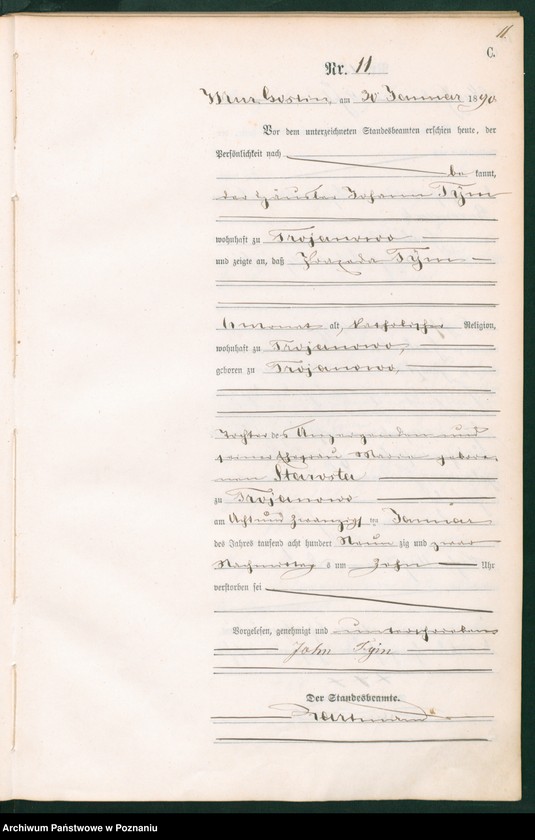 11.
C.
Nr. 11
Mur. Goslin, am 30 Januar 1890
Vor dem unterzeichneten Standesbeamten erschien heute, der
Persönlichkeit nach
be kannt,
der Häusler Johann Tÿm
wohnhaft zu Trojanowo
und zeigte an, daß Praxeda Tÿm
6 Monat alt, katholischer Religion,
wohnhaft zu Trojanowo,
geboren zu Trojanowo,
Tochter des Anzeigenden und
seiner Ehefrau Marie gebore-
nen Starosta
zu Trojanowo
am Acht und zwanzigsten Januar
des Jahres tausend acht hundert Neun zig und zwar
Nachmittag s um Zehn Uhr
verstorben sei
Vorgelesen, genehmigt und unterschrieben
John Tÿm
Der Standesbeamte.
Archiwum Państwowe w Poznaniu